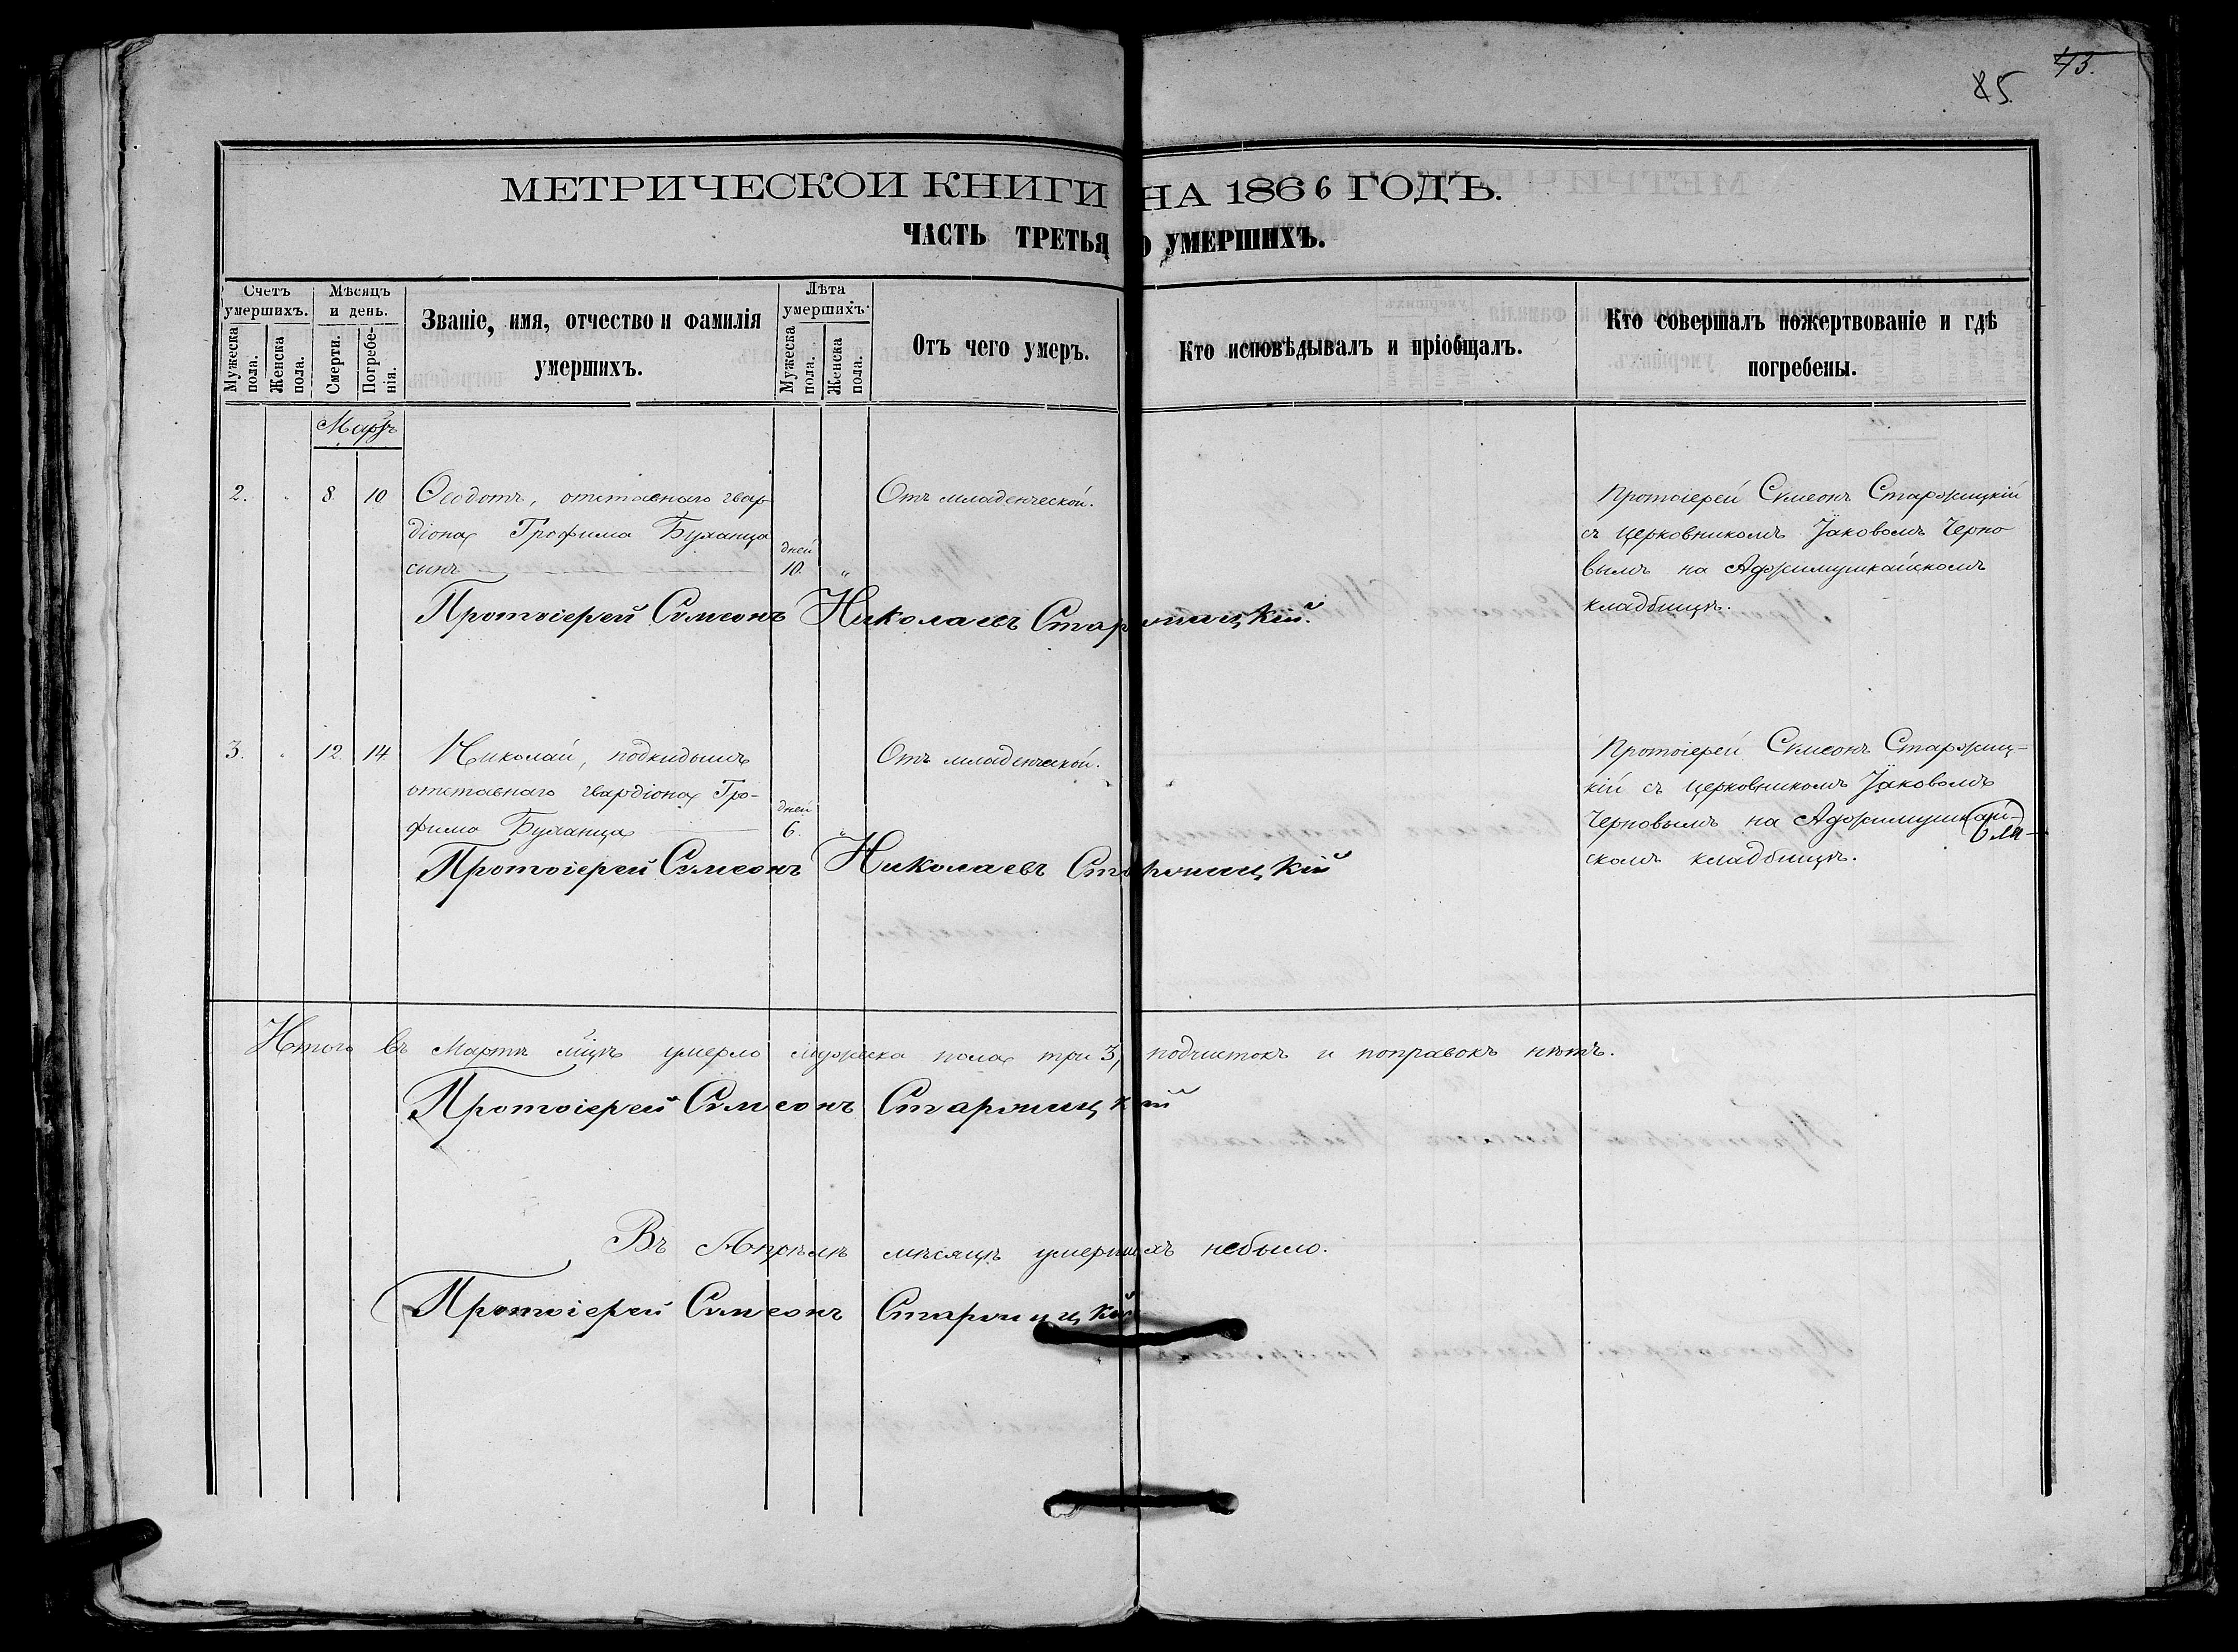 85. 73.
МЕТРИЧЕСКОЙ КНИГИ НА 1866 ГОДЪ.
ЧАСТЬ ТРЕТЬЯ О УМЕРШИХЪ.
Счетъ умершихъ.
Мужеска пола.
Женска пола.
Мѣсяцъ и день.
Смерти.
Погребенія.
Званіе, имя, отчество и фамилія
умершихъ.
Лѣта умершихъ.
Мужеска пола.
Женска пола.
Отъ чего умеръ.
Кто исповѣдывалъ и пріобщалъ.
Кто совершалъ пожертвованіе и гдѣ
погребены.
Мартъ
2. " 8. 10 Ѳеодотъ, отставнаго гвар- Отъ младенческой. Протоіерей Сѵмеонъ Старжицкій
діона Трофима Буханца дней съ церковникомъ Іаковомъ Черно
сынъ 10. " вымъ на Аджимушкайскомъ
кладбищѣ.
Протоіерей Сѵмеонъ Николаевъ Старжицкій.
3. " 12. 14 Николай, подкидышъ Отъ младенческой. Протоіерей Сѵмеонъ Старжиц-
отставнаго гвардіона Тро- дней кій съ церковникомъ Іаковомъ
фима Буханца 6. " Черновымъ на Аджимушкай-
скомъ кладбищѣ.
Протоіерей Сѵмеонъ Николаевъ Старжицкій
Итого въ Мартѣ м҃цѣ умерло мужеска пола три 3, подчистокъ и поправокъ нѣтъ.
Протоіерей Сѵмеонъ Старжицкій
Въ Апрѣлѣ мѣсяцѣ умершихъ небыло.
Протоіерей Сѵмеонъ Старжицкій